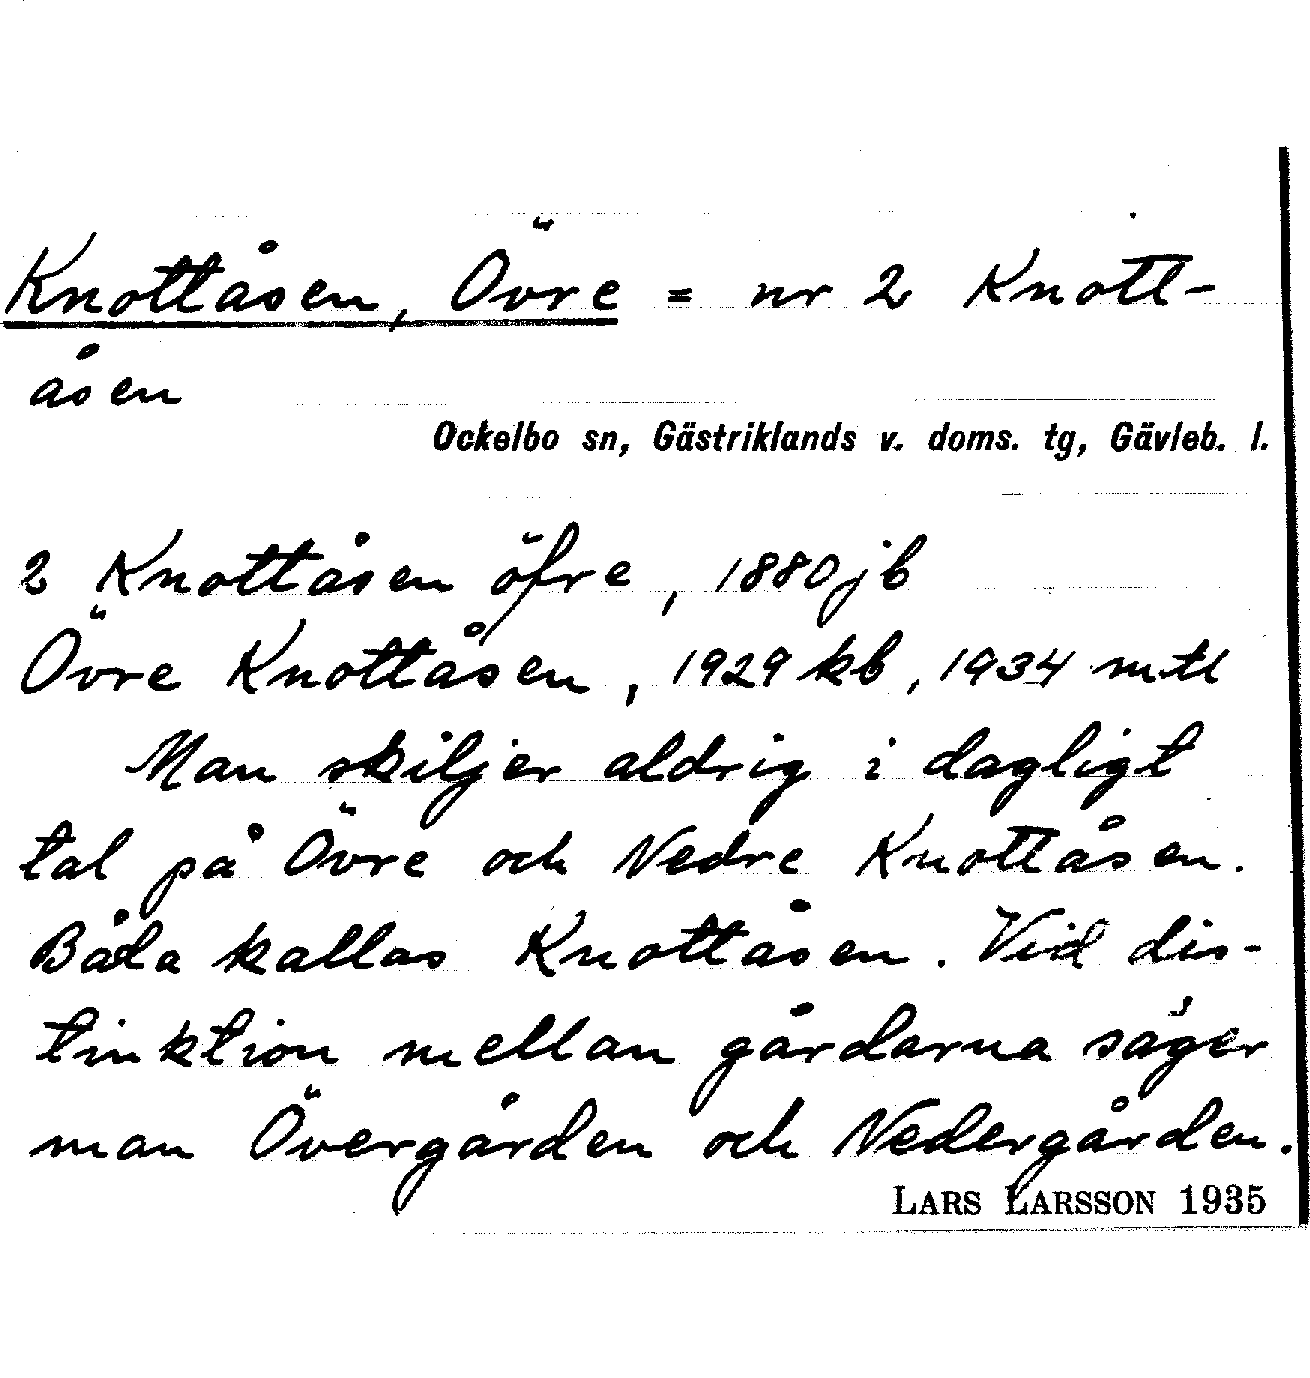 Knottåsen, Övre = nr 2 Knott-
åsen
Ockelbo sn, Gästriklands v. doms. tg, Gävleb. l.
2 Knottåsen öfre, 1880 jb
Övre Knottåsen, 1929 kb, 1934 mtl
Man skiljer aldrig i dagligt
tal på Övre och Nedre Knottåsen.
Båda kallas Knottåsen. Vid dis-
tinktion mellan gårdarna säger
man Övergården och Nedergården.
LARS LARSSON 1935